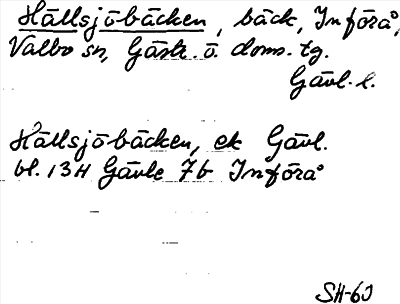 Hällsjöbäcken, bäck, Införå,
Valbo sn, Gästr. ö. doms. tg.
Gävl. l.
Hällsjöbäcken, ek Gävl.
bl. 13H Gävle 7b Införå
SH-63